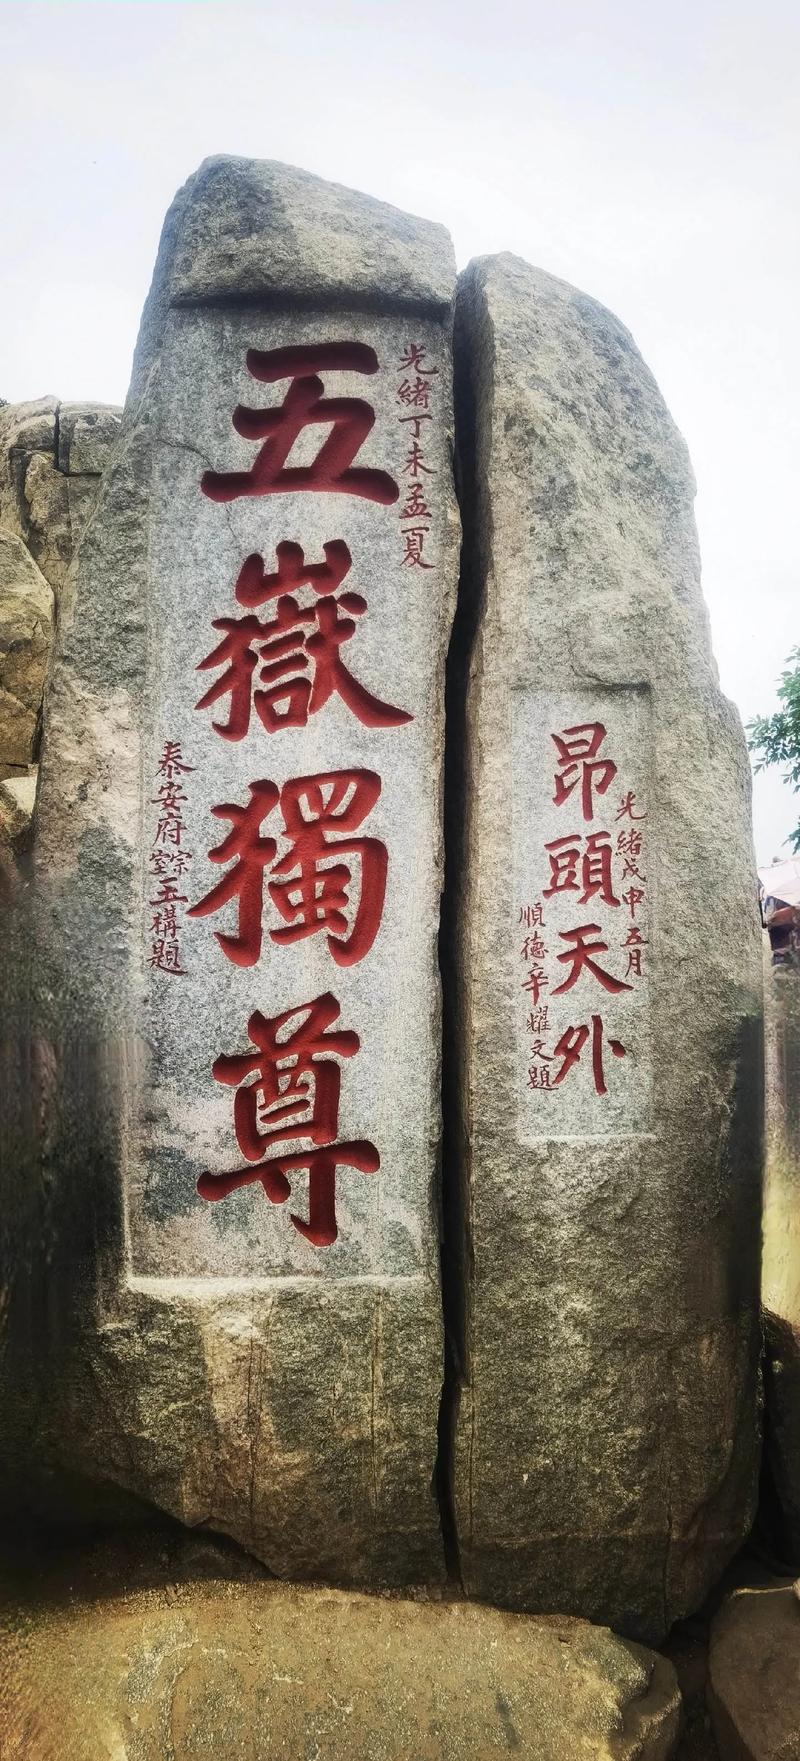 光緒丁未孟夏
五嶽獨尊
泰安府宗室玉構題
光緒戊申五月
昂頭天外
順德辛耀文題